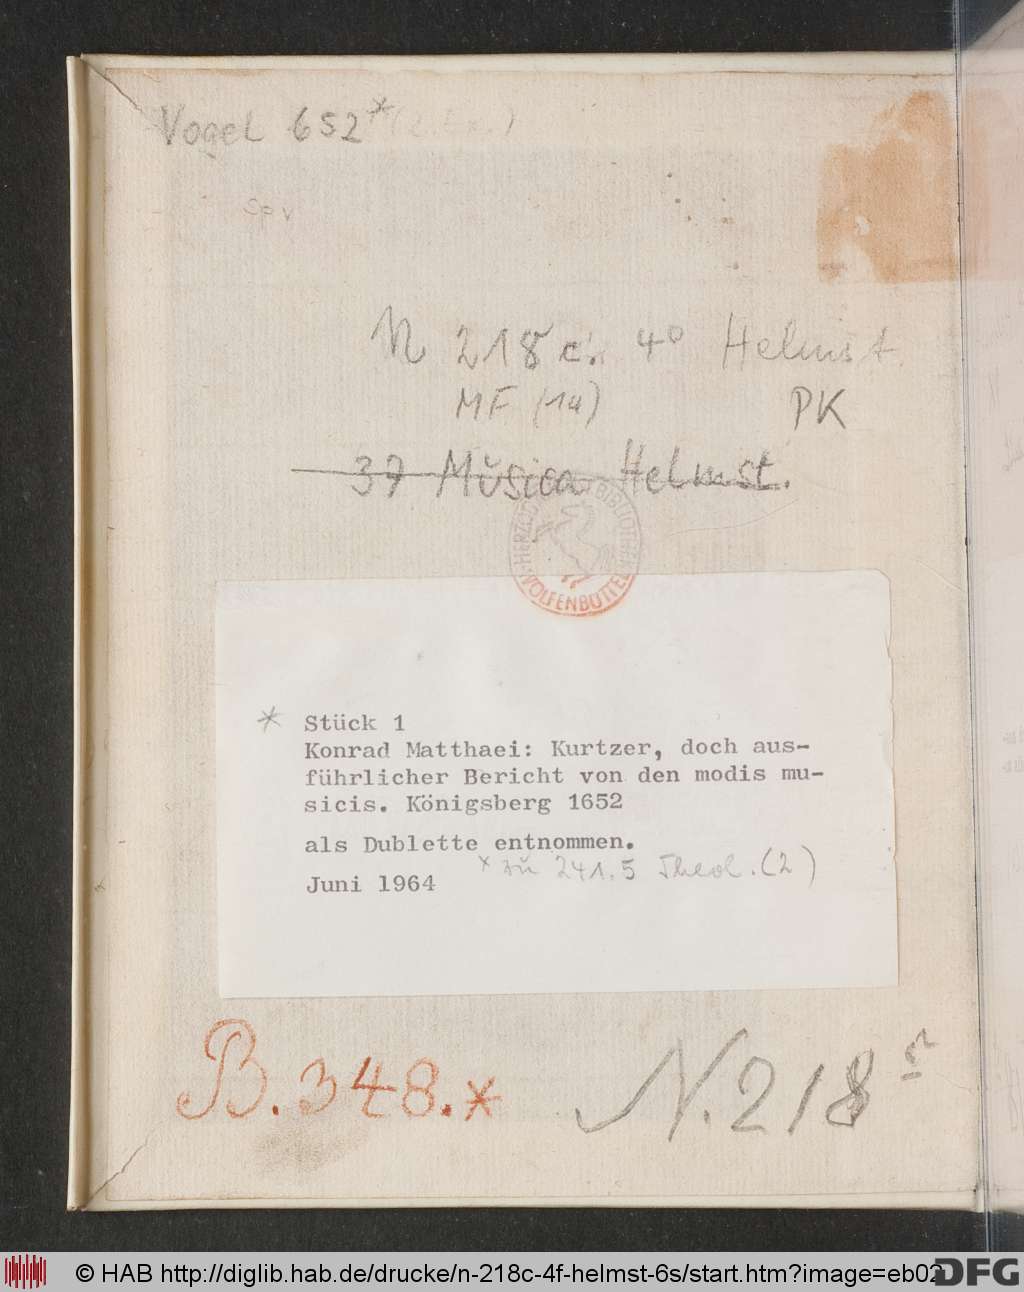 Vogel 652*
N 218 c. 4° Helmst
MF (14) PK
37 Mŭsica Helmst.
HERZOG BIBLIOTHEK
WOLFENBÜTTEL
* Stück 1
Konrad Matthaei: Kurtzer, doch aus-
führlicher Bericht von den modis mu-
sicis. Königsberg 1652
als Dublette entnommen.
* zŭ 241.5 Theol. (2)
Juni 1964
B. 348.* N. 218
© HAB http://diglib.hab.de/drucke/n-218c-4f-helmst-6s/start.htm?image=eb02
DFG